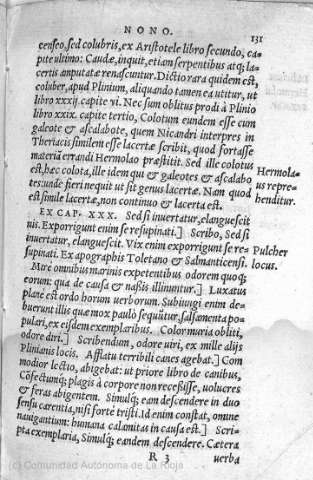 NONO. 131
censeo, sed colubris, ex Aristotele libro secundo, ca-
pite ultimo: Caudæ, inquit, etiam serpentibus atq; la-
certis amputatæ renascuntur. Dictio rara quidem est,
coluber, apud Plinium, aliquando tamen ea utitur, ut
libro xxxij. capite vi. Nec sum oblitus prodi à Plinio
libro xxix. capite tertio, Colotum eundem esse cum
galeote & ascalabote, quem Nicandri interpres in
Theriacis similem esse lacertæ scribit, quod fortasse
materiã errandi Hermolao præstitit. Sed ille colotus
est, hæc colota, ille idem qui & galeotes & ascalabo
tes: unde fieri nequit ut sit genus lacertæ. Nam quod
est simile lacertæ, non continuo & lacerta est.
Hermola-
us repre-
henditur.
EX CAP. XXX. Sed si inuertatur, elanguescit
uis. Exporrigunt enim se resupinati.] Scribo, Sed si
inuertatur, elanguescit. Vix enim exporrigunt se re-
supinati. Ex apographis Toletano & Salmanticensi.
Pulcher
locus.
Mirè omnibus marinis expetentibus odorem quoq;
eorum: qua de causa & nassis illinuntur.] Luxatus
plane est ordo horum uerborum. Subiungi enim de-
buerunt illis quæ mox paulò sequũtur, salsamenta po-
pulari, ex eisdem exemplaribus. Color muria obliti,
odore diri.] Scribendum, odore uiri, ex mille alijs
Plinianis locis. Afflatu terribili canes agebat.] Com
modior lectio, abigebat: ut priore libro de canibus,
Cõfectumq; plagis à corpore non recessisse, uolucres
& feras abigentem. Simulq; eam descendere in duo
sensu carentia, nisi fortè tristi. Id enim constat, omne
nauigantium: humana calamitas in causa est.] Scri-
pta exemplaria, Simulq; eandem descendere. Cætera
R 3 uerba
(c) Comunidad Autónoma de La Rioja